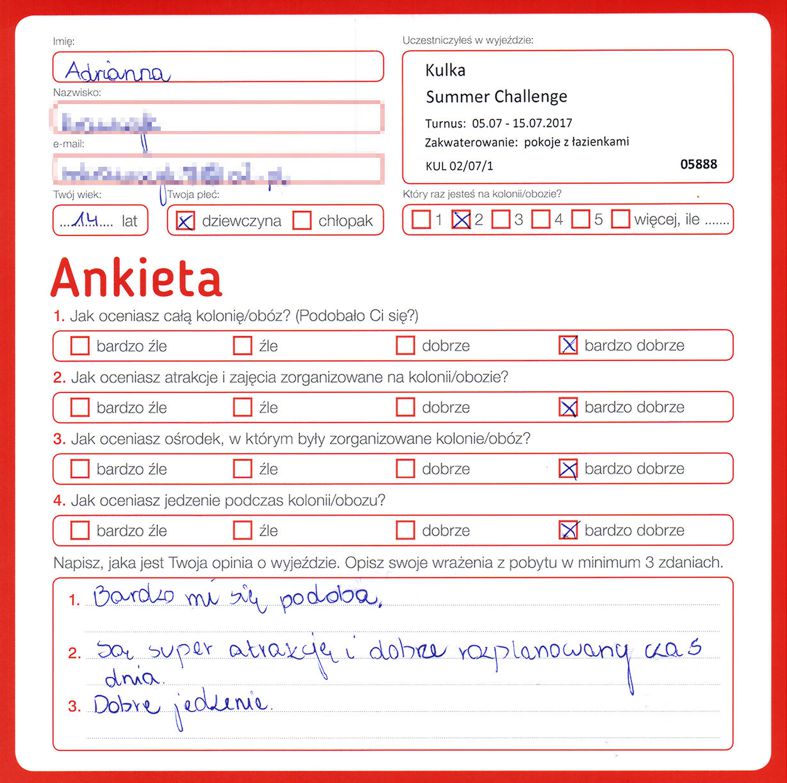 Imię:
Adrianna
Nazwisko:
e-mail:
Twój wiek:
14 lat
Twoja płeć:
dziewczyna chłopak
Uczestniczyłeś w wyjeździe:
Kulka
Summer Challenge
Turnus: 05.07 - 15.07.2017
Zakwaterowanie: pokoje z łazienkami
KUL 02/07/1 05888
Który raz jesteś na kolonii/obozie?
1 2 3 4 5 więcej, ile .......
Ankieta
1. Jak oceniasz całą kolonię/obóz? (Podobało Ci się?)
bardzo źle źle dobrze bardzo dobrze
2. Jak oceniasz atrakcje i zajęcia zorganizowane na kolonii/obozie?
bardzo źle źle dobrze bardzo dobrze
3. Jak oceniasz ośrodek, w którym były zorganizowane kolonie/obóz?
bardzo źle źle dobrze bardzo dobrze
4. Jak oceniasz jedzenie podczas kolonii/obozu?
bardzo źle źle dobrze bardzo dobrze
Napisz, jaka jest Twoja opinia o wyjeździe. Opisz swoje wrażenia z pobytu w minimum 3 zdaniach.
1. Bardzo mi się podoba.
2. Są super atrakcję i dobrze rozplanowany czas
dnia.
3. Dobre jedzenie.